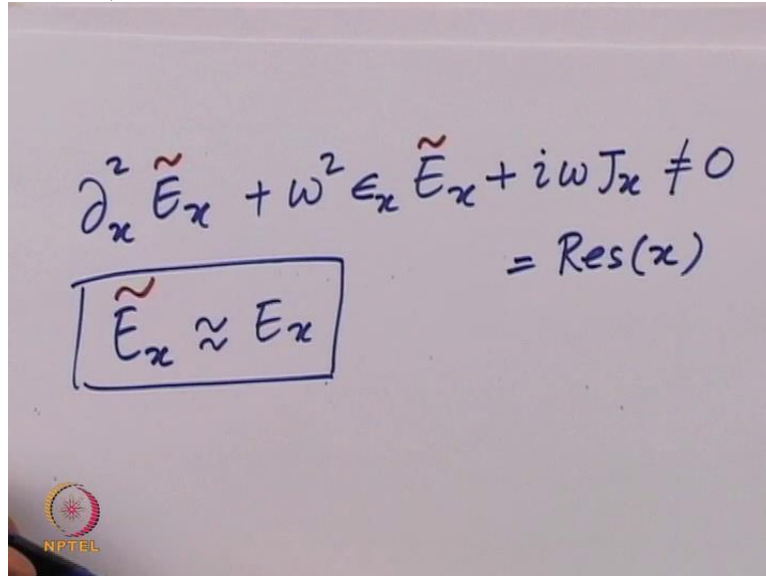 ∂ₓ² Ẽₓ + ω² εₓ Ẽₓ + iωJₓ ≠ 0
= Res(x)
Ẽₓ ≈ Eₓ
NPTEL